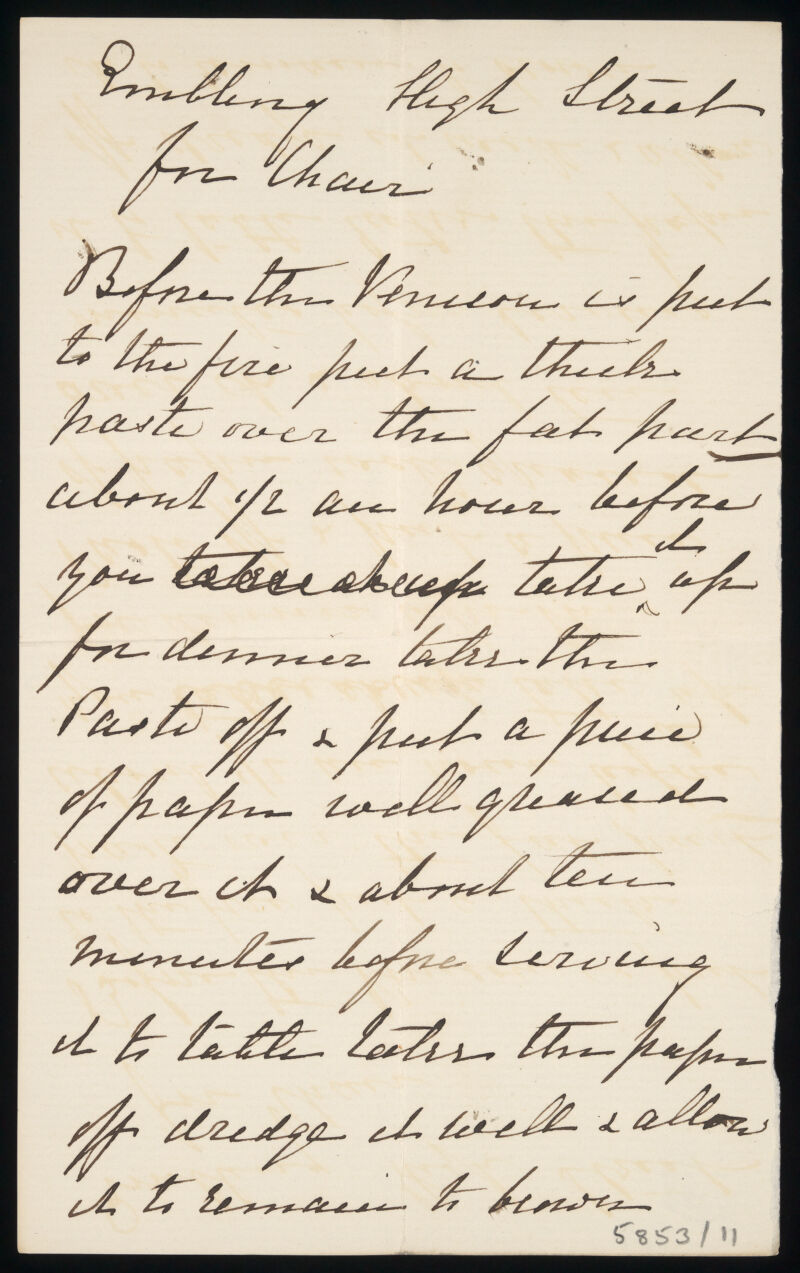 Embling High Street
for Chair
Before the Venison is put
to the fire put a thick
paste over the fat part
about 1/2 an hour before
you take it up take it up
for dinner take the
Paste off & put a piece
of paper well greased
over it & about ten
minutes before serving
it to table take the paper
off dredge it well & allow
it to remain to brown
5853/11